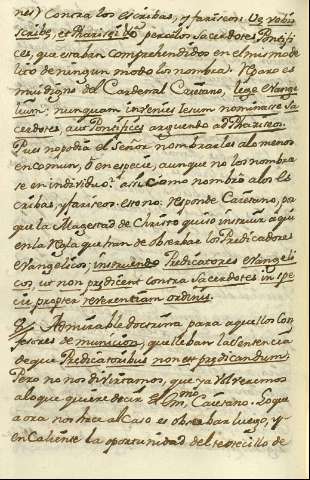 nes) Contra los escribas, y fariseos: Ve vobis
scribę, et Pharisęi. Y pero los Sacerdotes Pontifi-
ces, que estaban comprehendidos en el mismo de
lito de ningun modo los nombra. Y Caso es
mui digno del Cardenal Caietano, lege Evange
lium; nunquam invenies Iesum nominasse Sa
cerdotes, aut Pontifices arguendo ad Phariseos.
Pues no podia el Señor nombrarles alomenos
en comun, ò en especie, aunque no los nombra
se en individuo: asi como nombrò alos es
cribas, y fariseos: esto no: responde Caietano, por
que la Magestad de Christo quiso instruir aqui
en la Regla que han de obserbar los Predicadores
evangelicos; instruendo Predicatores evangeli
cos, ut non prędicent contra Sacerdotes in spe
cie propter reverentiam ordinis.
Admirable doctrina para aquellos con
fesores de municion, que lleban la Sentencia
de que Predicatoribus non est prędicandum;
Pero no nos divirtamos, que ya volveremos
alo que quiere decir el Em.mo Caietano. Lo que
aora nos hace al Caso es obserbar luego, y
en Caliente la oportunidad del textecillo de